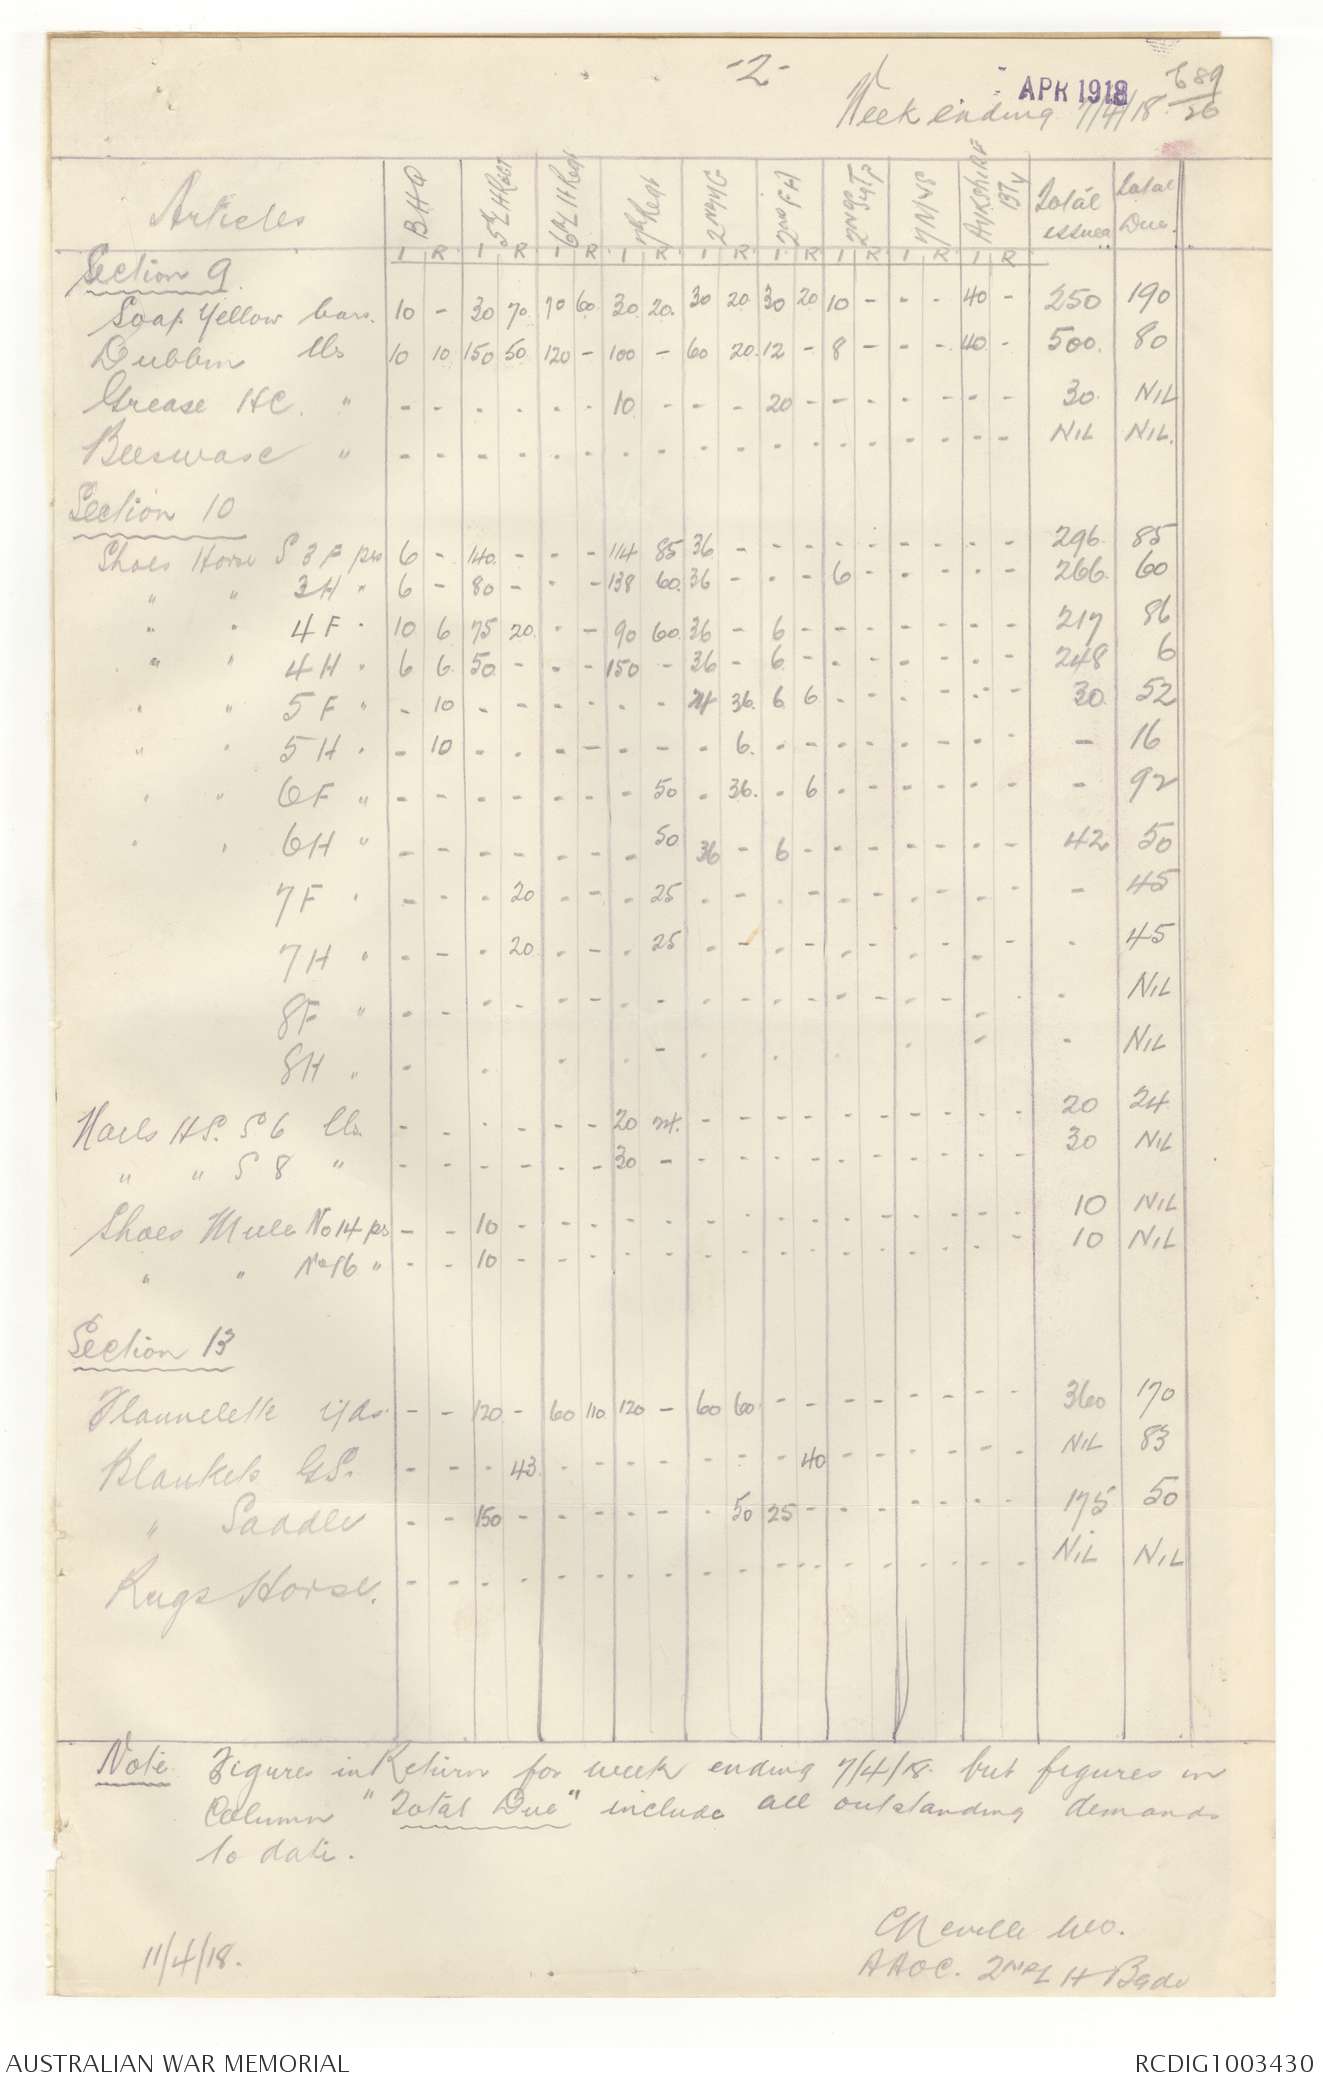 -2-
APR 1918
Week ending 7/4/18.
689/26
Articles BHQ 5th LH Regt 6th LH Regt 7th Regt 2nd MG 2nd FA 2nd Sig Tp 7 MVS AYRSHIRE BTY Total issued Total Due.
I R I R I R I R I R I R I R I R I R
Section 9.
Soap Yellow bars. 10 - 30 70 70 60 30 20. 30 20 30 20 10 - - - 40 - 250 190
Dubbin lbs 10 10 150 50 120 - 100 - 60 20. 12 - 8 - - - 40 - 500. 80
Grease HC. " - - - - - - 10 - - - 20 - - - - - - - 30 NIL
Beeswaxe " - - - - - - - - - - - - - - - - - - NIL NIL.
Section 10
Shoes Horse S 3 F prs 6 - 140 - - - 114 85 36 - - - - - - - - - 296 85
" " 3H " 6 - 80 - - - 138 60. 36 - - - 6 - - - - - 266. 60
" " 4 F " 10 6 75 20. - - 90 60. 36 - 6 - - - - - - - 217 86
" " 4 H " 6 6 50 - - - 150 - 36 - 6 - - - - - - - 248 6
" " 5 F " - 10 - - - - - - 24 36. 6 6 - - - - - - 30 52
" " 5 H " - 10 - - - - - - - 6. - - - - - - - - - 16
" " 6F " - - - - - - - 50 - 36. - 6 - - - - - - - 92
" " 6H " - - - - - - - 50 36 - 6 - - - - - - - 42 50
7 F " - - - 20 - - - 25 - - - - - - - - - - - 45
7 H " - - - 20 - - - 25 - - - - - - - - - - - 45
8F " - - - - - - - - - - - - - - - - - - - NIL
8H " - - - - - - - - - - NIL
Nails HS. S 6 lbs - - - - - - 20 24. - - - - - - - - - - 20 24
" " S 8 " - - - - - - 30 - - - - - - - - - - - 30 NIL
Shoes Mule No 14 prs - - 10 - - - - - - - - - - - - - - - 10 NIL
" " No 16 " - - 10 - - - - - - - - - - - - - - - 10 NIL
Section 13
Flannelette yds - - 120 - 60 110 120 - 60 60 - - - - - - - - 360 170
Blankets GS. - - - 43. - - - - - - - 40 - - - - - - NIL 83
" Saddle - - 150 - - - - - - 50 25 - - - - - - - 175 50
Rugs Horse. - - - - - - - - - - - - - - - - - - NIL NIL
Note Figures in Return for week ending 7/4/18. but figures in
Column "Total Due" include all outstanding demands
to date.
C Neville WO.
11/4/18.
AAOC. 2nd L H Bgde
AUSTRALIAN WAR MEMORIAL
RCDIG1003430